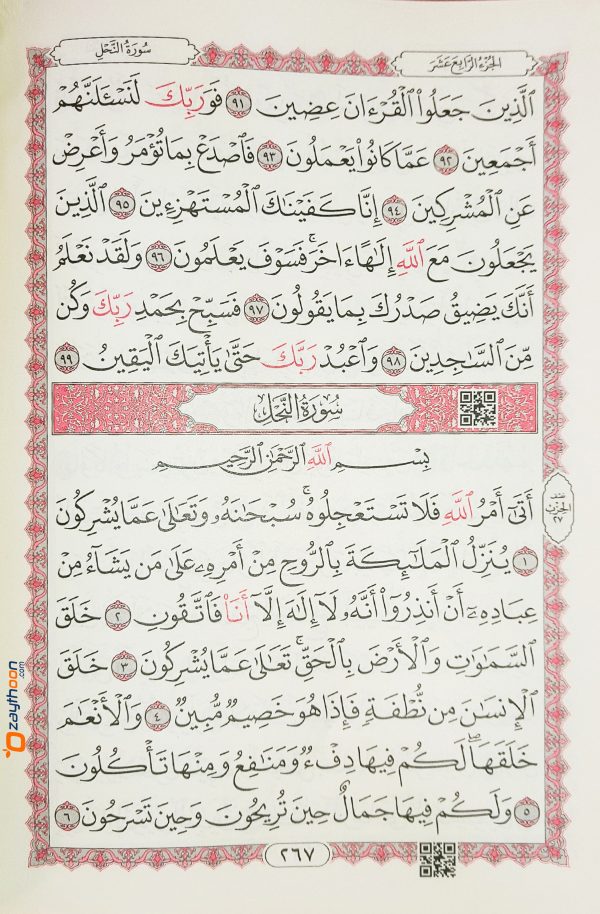 سُورَةُ النَّحْلِ
الجُزْءُ الرَّابِعَ عَشَرَ
ٱلَّذِينَ جَعَلُوا۟ ٱلْقُرْءَانَ عِضِينَ ٩١ فَوَرَبِّكَ لَنَسْـَٔلَنَّهُمْ
أَجْمَعِينَ ٩٢ عَمَّا كَانُوا۟ يَعْمَلُونَ ٩٣ فَٱصْدَعْ بِمَا تُؤْمَرُ وَأَعْرِضْ
عَنِ ٱلْمُشْرِكِينَ ٩٤ إِنَّا كَفَيْنَـٰكَ ٱلْمُسْتَهْزِءِينَ ٩٥ ٱلَّذِينَ
يَجْعَلُونَ مَعَ ٱللَّهِ إِلَـٰهًا ءَاخَرَ ۚ فَسَوْفَ يَعْلَمُونَ ٩٦ وَلَقَدْ نَعْلَمُ
أَنَّكَ يَضِيقُ صَدْرُكَ بِمَا يَقُولُونَ ٩٧ فَسَبِّحْ بِحَمْدِ رَبِّكَ وَكُن
مِّنَ ٱلسَّـٰجِدِينَ ٩٨ وَٱعْبُدْ رَبَّكَ حَتَّىٰ يَأْتِيَكَ ٱلْيَقِينُ ٩٩
سُورَةُ النَّحْلِ
بِسْمِ ٱللَّهِ ٱلرَّحْمَـٰنِ ٱلرَّحِيمِ
أَتَىٰٓ أَمْرُ ٱللَّهِ فَلَا تَسْتَعْجِلُوهُ ۚ سُبْحَـٰنَهُۥ وَتَعَـٰلَىٰ عَمَّا يُشْرِكُونَ
١ يُنَزِّلُ ٱلْمَلَـٰٓئِكَةَ بِٱلرُّوحِ مِنْ أَمْرِهِۦ عَلَىٰ مَن يَشَآءُ مِنْ
عِبَادِهِۦٓ أَنْ أَنذِرُوٓا۟ أَنَّهُۥ لَآ إِلَـٰهَ إِلَّآ أَنَا۠ فَٱتَّقُونِ ٢ خَلَقَ
ٱلسَّمَـٰوَٰتِ وَٱلْأَرْضَ بِٱلْحَقِّ ۚ تَعَـٰلَىٰ عَمَّا يُشْرِكُونَ ٣ خَلَقَ
ٱلْإِنسَـٰنَ مِن نُّطْفَةٍ فَإِذَا هُوَ خَصِيمٌ مُّبِينٌ ٤ وَٱلْأَنْعَـٰمَ
خَلَقَهَا ۗ لَكُمْ فِيهَا دِفْءٌ وَمَنَـٰفِعُ وَمِنْهَا تَأْكُلُونَ
٥ وَلَكُمْ فِيهَا جَمَالٌ حِينَ تُرِيحُونَ وَحِينَ تَسْرَحُونَ ٦
الحِزْب
٢٧
٢٦٧
zaythoon.com